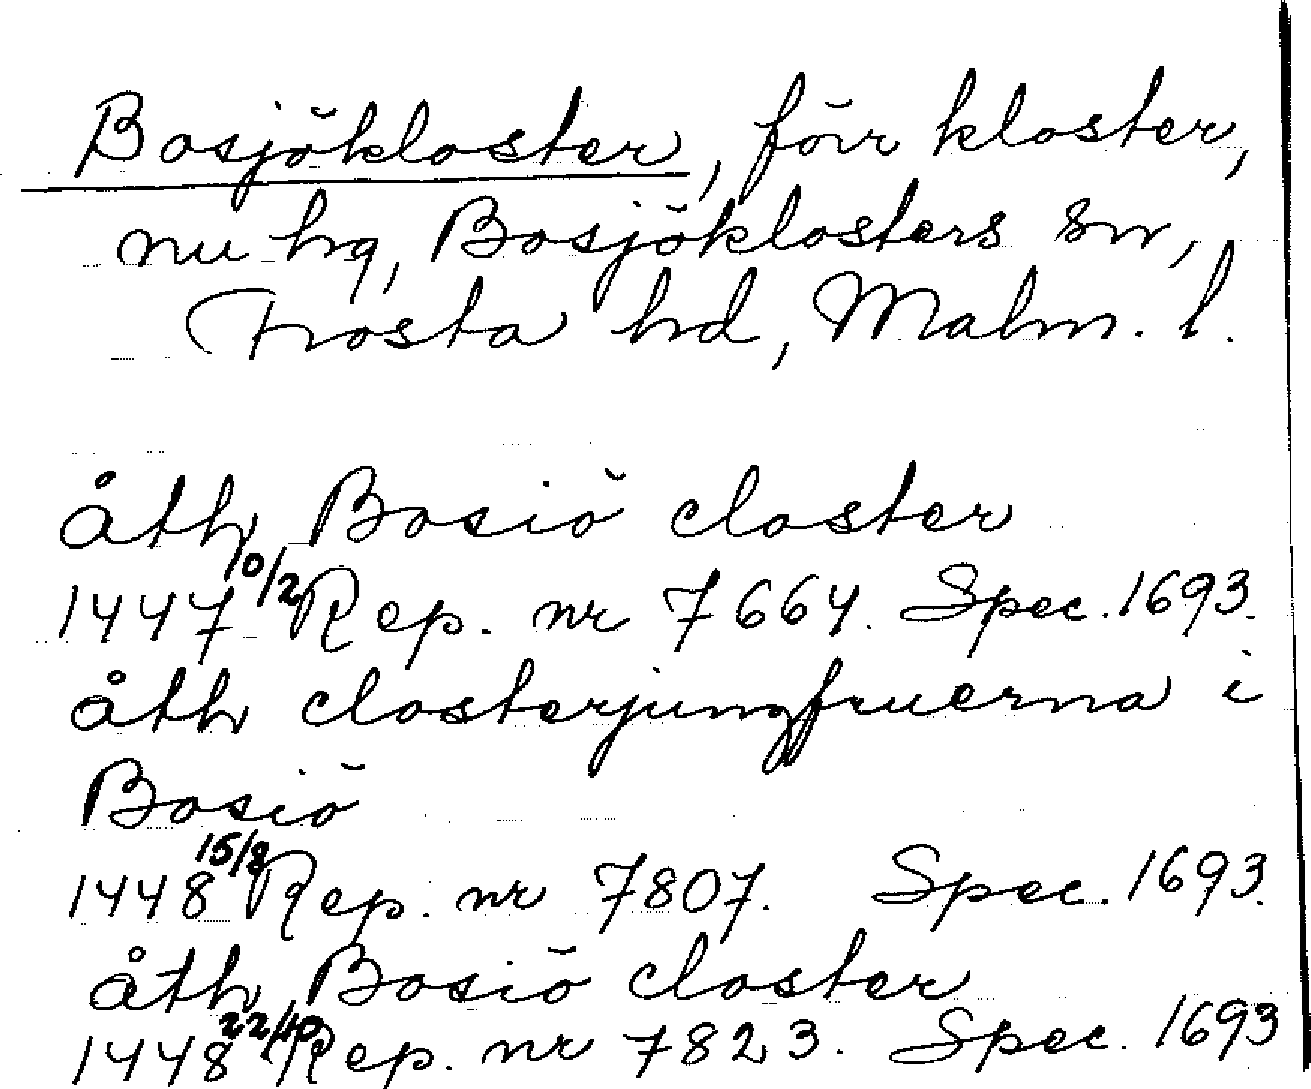 Bosjökloster, förr kloster,
nu hg, Bosjöklosters sn,
Frosta hd, Malm. l.
åth Bosiö closter
1447 10/2 Rep. nr 7664. Spec. 1693.
åth closterjungfruerna i
Bosiö
1448 15/8 Rep. nr 7807. Spec. 1693.
åth Bosiö closter
1448 22/10 Rep. nr 7823. Spec. 1693